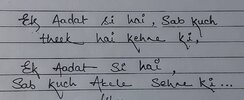 Ek Aadat si hai, Sab kuch
theek hai kehne ki,
Ek Aadat si hai,
Sab kuch Akele Sehne ki...